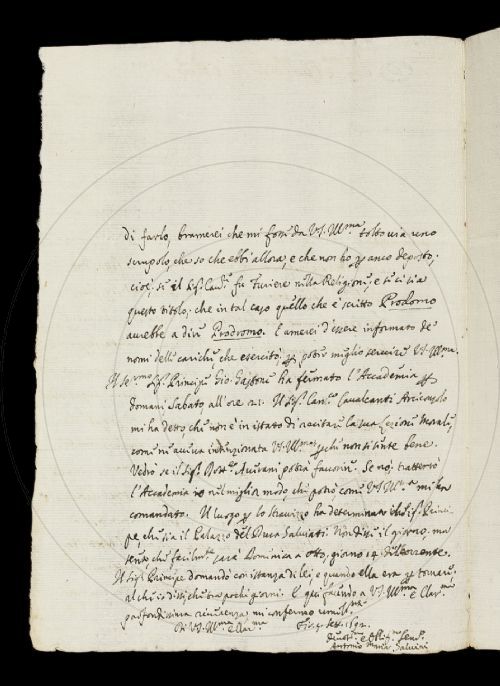 di farlo, bramerei che mi fosse da V.S. Ill.ma tolto via uno
scrupolo, che so che ebbi allora, e che non ho per anco deposto,
cioè, se il Sig.r Cav.e fu Furiere nella Religione, e se ci sia
questo titolo, che in tal caso quello che è scritto Prodomo
avrebbe a dire Prodromo. E amerei d'essere informato de
nomi delle cariche che esercitò per poter meglio servire V.S. Ill.ma.
Il Ser.mo Sig.r Principe Gio. Gastone ha fermato l'Accademia per
domani Sabato all'ore 21. Il Sig.r Can.co Cavalcanti Arciconsolo
mi ha detto, che non è in istato di recitare la sua Lezione Morale,
come n'aveva intenzionata V.S. Ill.ma perché non si sente bene.
Vedrò se il Sig.r Dott.re Averani potrà favorire. Se no, tratterrò
l'Accademia io nel miglior modo, che potrò come V.S. Ill.ma mi ha
comandato. Il luogo per lo stravizzo ha determinato il Sig.r Princi-
pe, che sia il Palazzo del Duca Salviati. Non disse il giorno, ma
sento, che facilm.te sarà Domenica a otto, giorno 14 del corrente.
Il Sig.r Principe domandò con istanza di lei, e quando ella era per tornare,
al che io dissi che fra pochi giorni. E qui facendo a V.S. Ill.ma e Clar.ma
profondissima reverenza mi confermo umilm.te
Di V.S. Ill.ma e Clar.ma
Fir. 5 Sett. 1692.
Devot.mo e Obblig.mo Serv.re
Antonio Maria Salvini